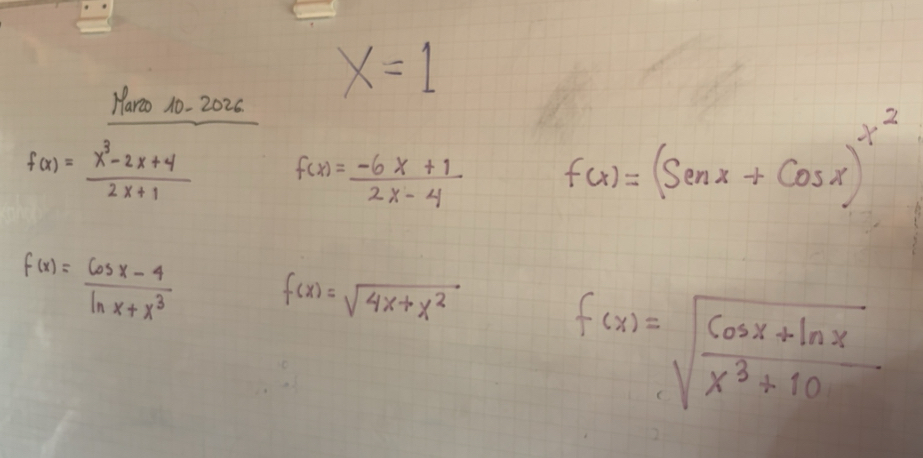 x = 1
Marzo 10-2026
f(x) = x³-2x+4 / 2x+1
f(x) = -6x+1 / 2x-4
f(x) = (Senx + Cosx)^x²
f(x) = Cosx-4 / ln x+x³
f(x) = √4x+x²
f(x) = √Cosx+ln x / x³+10